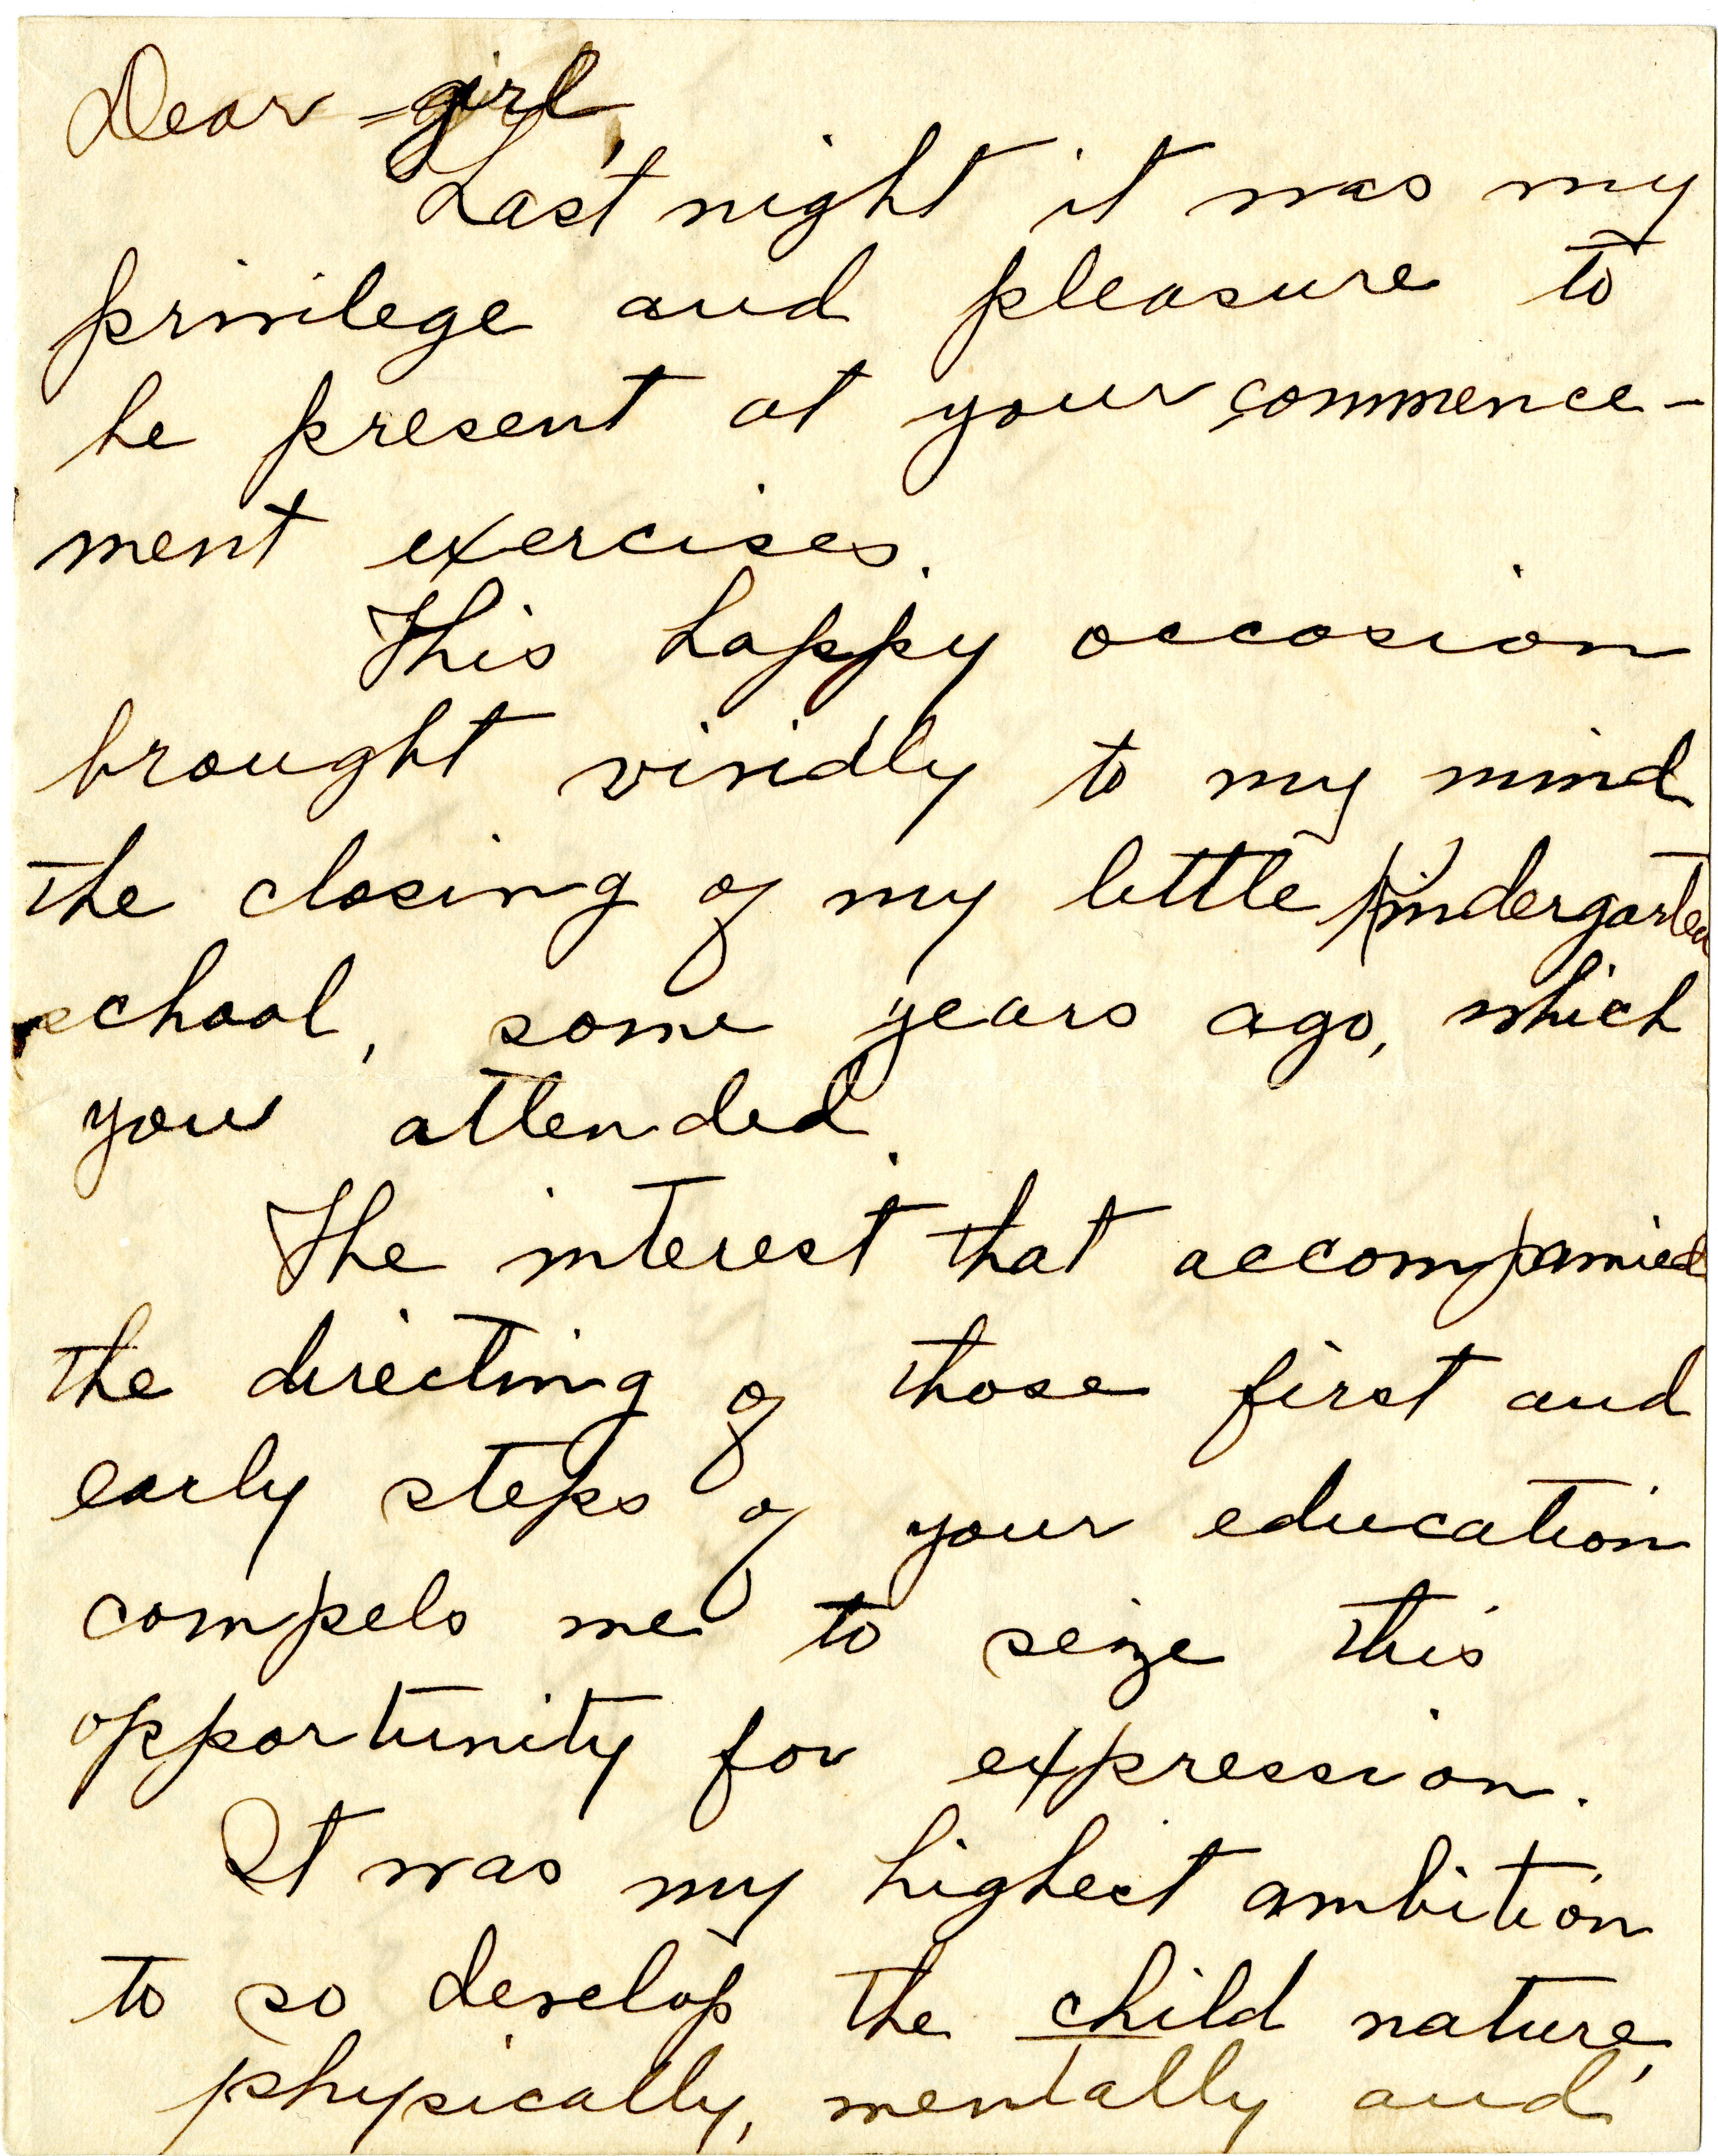 Dear girl,
Last night it was my
privilege and pleasure to
be present at your commence-
ment exercises.
This happy occasion
brought vividly to my mind
the closing of my little kindergarten
school, some years ago, which
you attended.
The interest that accompanied
the directing of those first and
early steps of your education
compels me to seize this
opportunity for expression.
It was my highest ambition
to so develop the child nature,
physically, mentally and